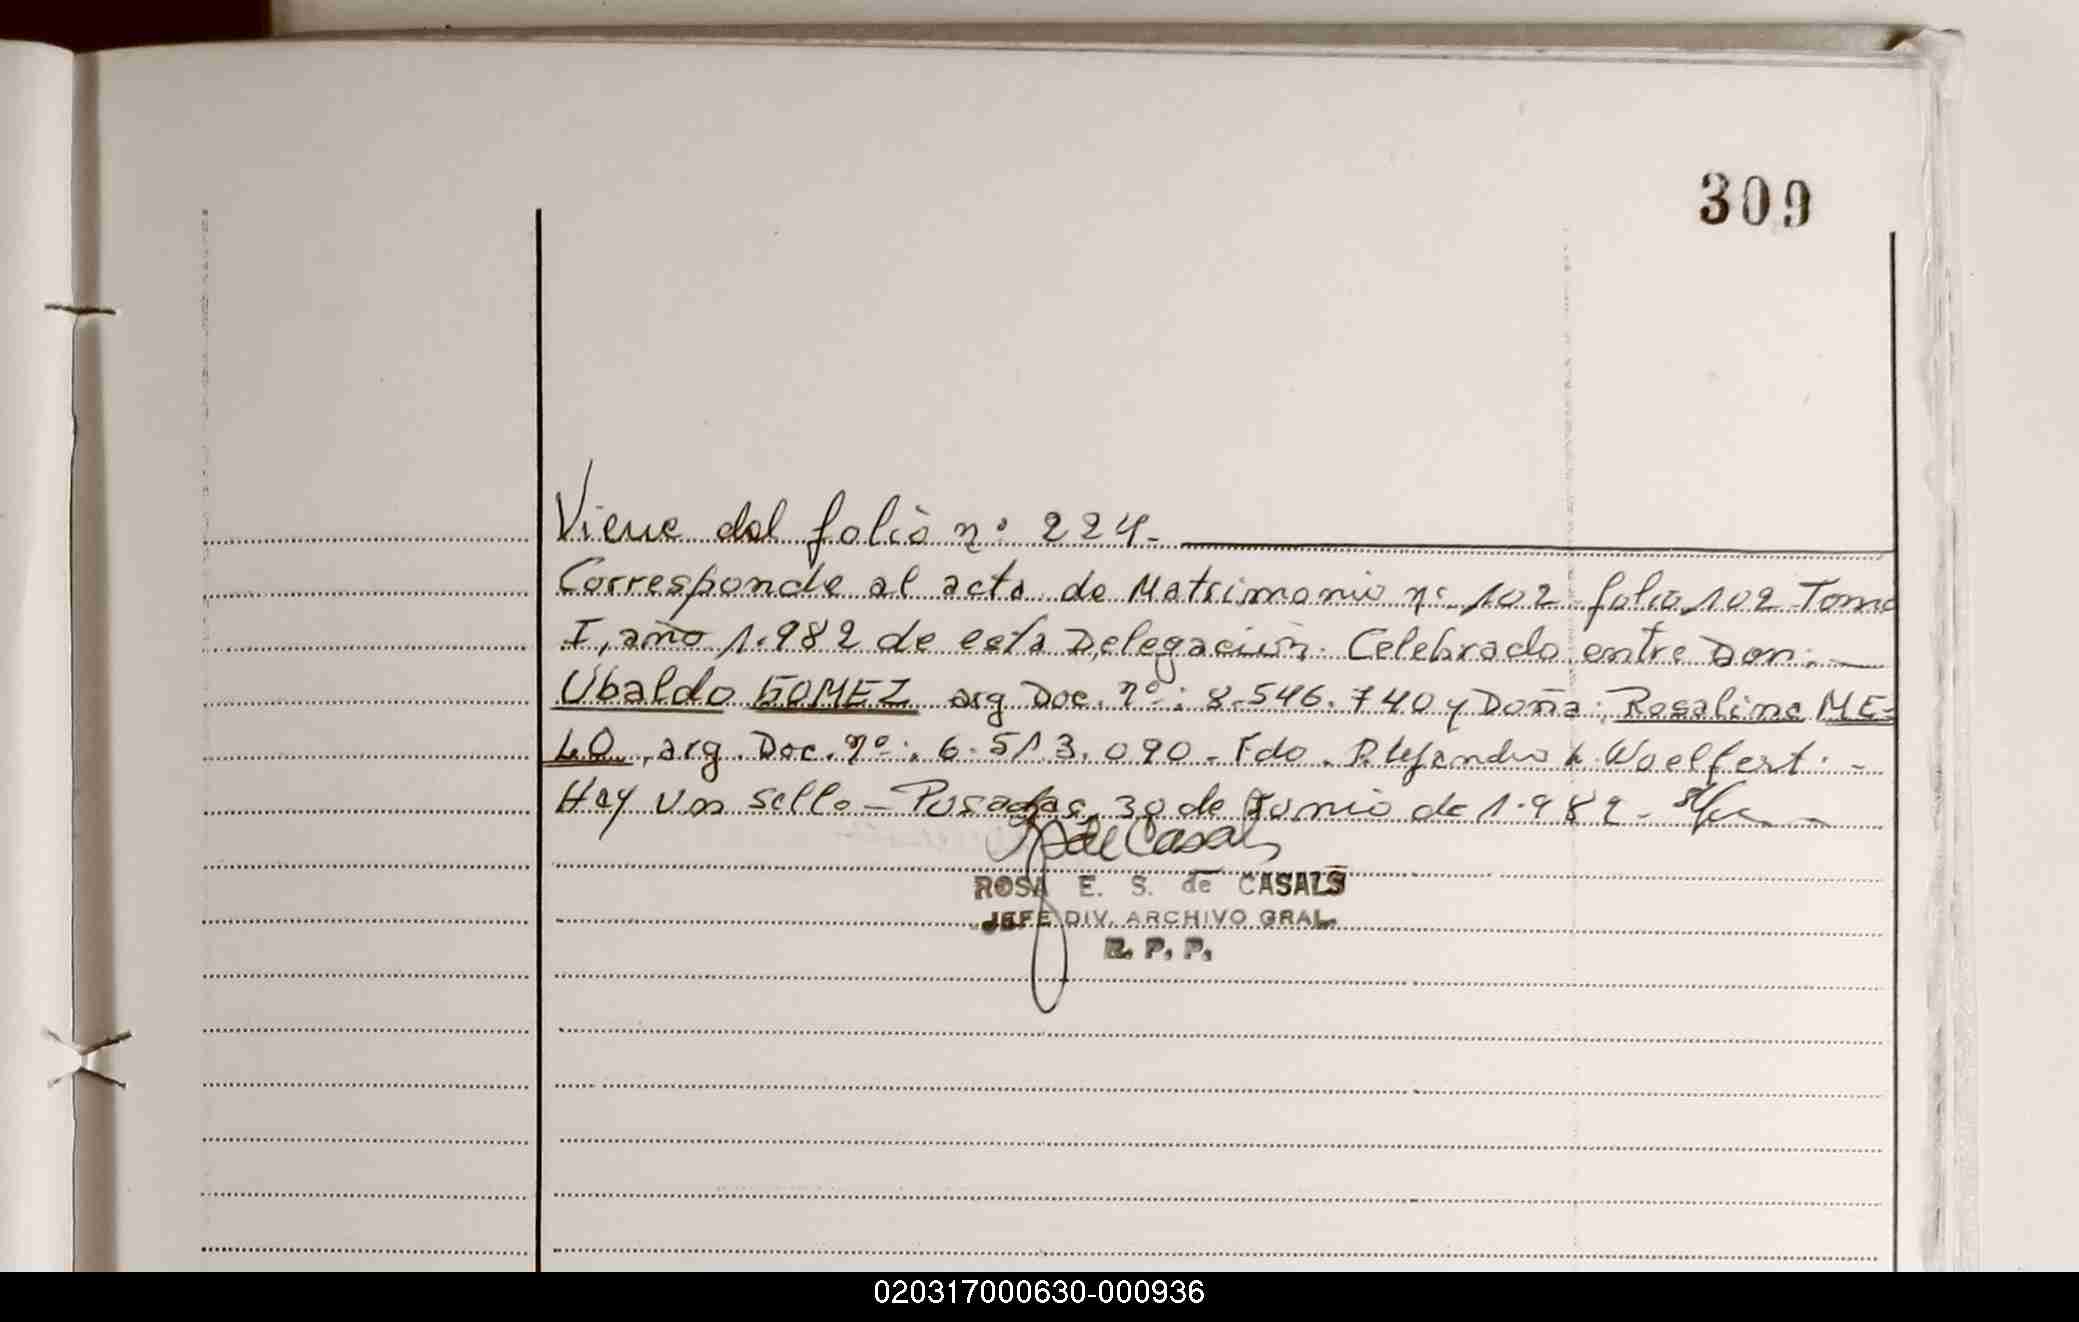 309
Viene del folio nº 224.
Corresponde al acta de Matrimonio nº 102 folio 102 Tomo
I, año 1.982 de esta Delegación. Celebrado entre Don:
Ubaldo GOMEZ arg Doc. nº: 8.546.740 y Doña: Rosalina ME-
LO, arg. Doc. nº: 6.513.090. Fdo. Alejandro Woelfert.-
Hay un sello - Posadas, 30 de Junio de 1.982.
de Casals
ROSA E. S. de CASALS
JEFE DIV. ARCHIVO GRAL.
R. P. P.
020317000630-000936